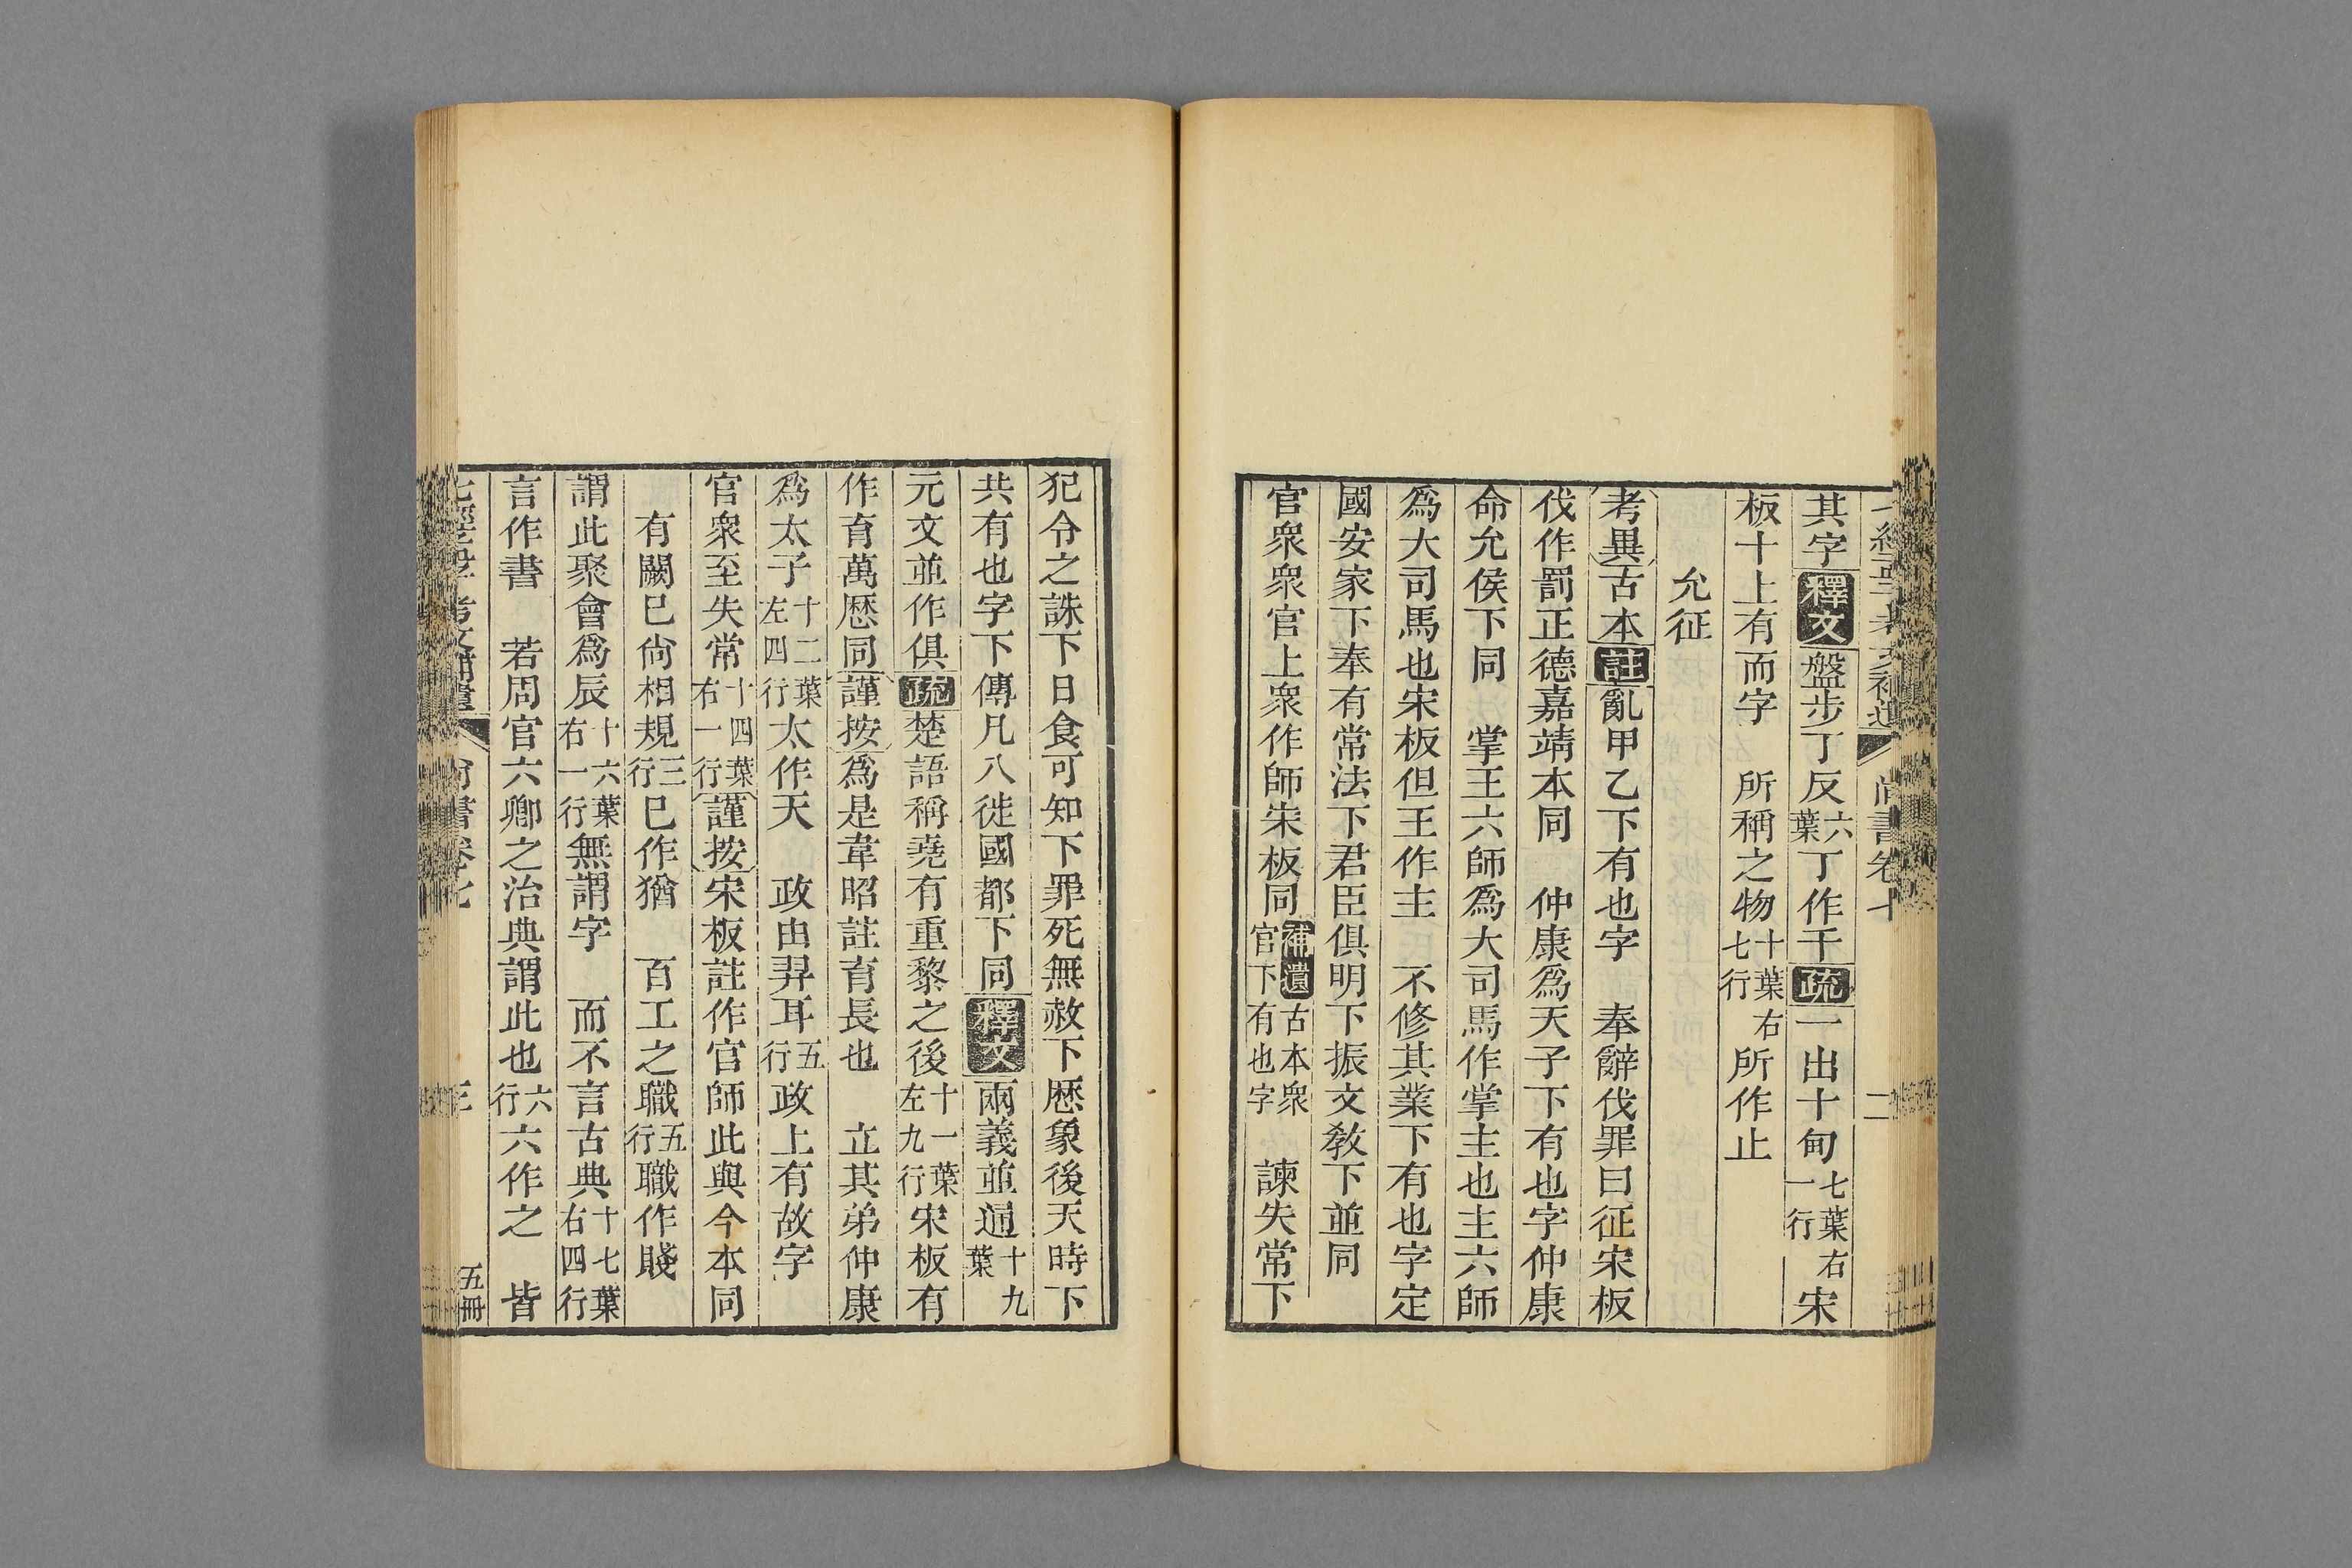 七經孟子考文補遺 尚書卷七 二
其字釋文盤步丁反六葉丁作干疏一出十甸七葉右一行宋
板十上有而字 所稱之物十葉右七行所作止
允征
考異古本註亂甲乙下有也字 奉辭伐罪曰征宋板
伐作罰正德嘉靖本同 仲康爲天子下有也字仲康
命允侯下同 掌王六師爲大司馬作掌主也主六師
爲大司馬也宋板但王作主 不修其業下有也字定
國安家下奉有常法下君臣俱明下振文敎下並同
官衆衆官上衆作師宋板同補遺古本衆官下有也字 諫失常下
犯令之誅下日食可知下罪死無赦下歷象後天時下
共有也字下傳凡八徙國都下同釋文兩義並通十九葉
元文並作俱疏楚語稱堯有重黎之後十一葉左九行宋板有
作育萬歷同謹按爲是韋昭註育長也 立其弟仲康
爲太子十二葉左四行太作天 政由羿耳五行政上有故字
官衆至失常十四葉右一行謹按宋板註作官師此與今本同
有闕已尙相規三行已作猶 百工之職五行職作賤
謂此聚會爲辰十六葉右一行無謂字 而不言古典十七葉右四行
言作書 若周官六卿之治典謂此也六行六作之 皆
七經孟子考文補遺 尚書卷七 三 五冊